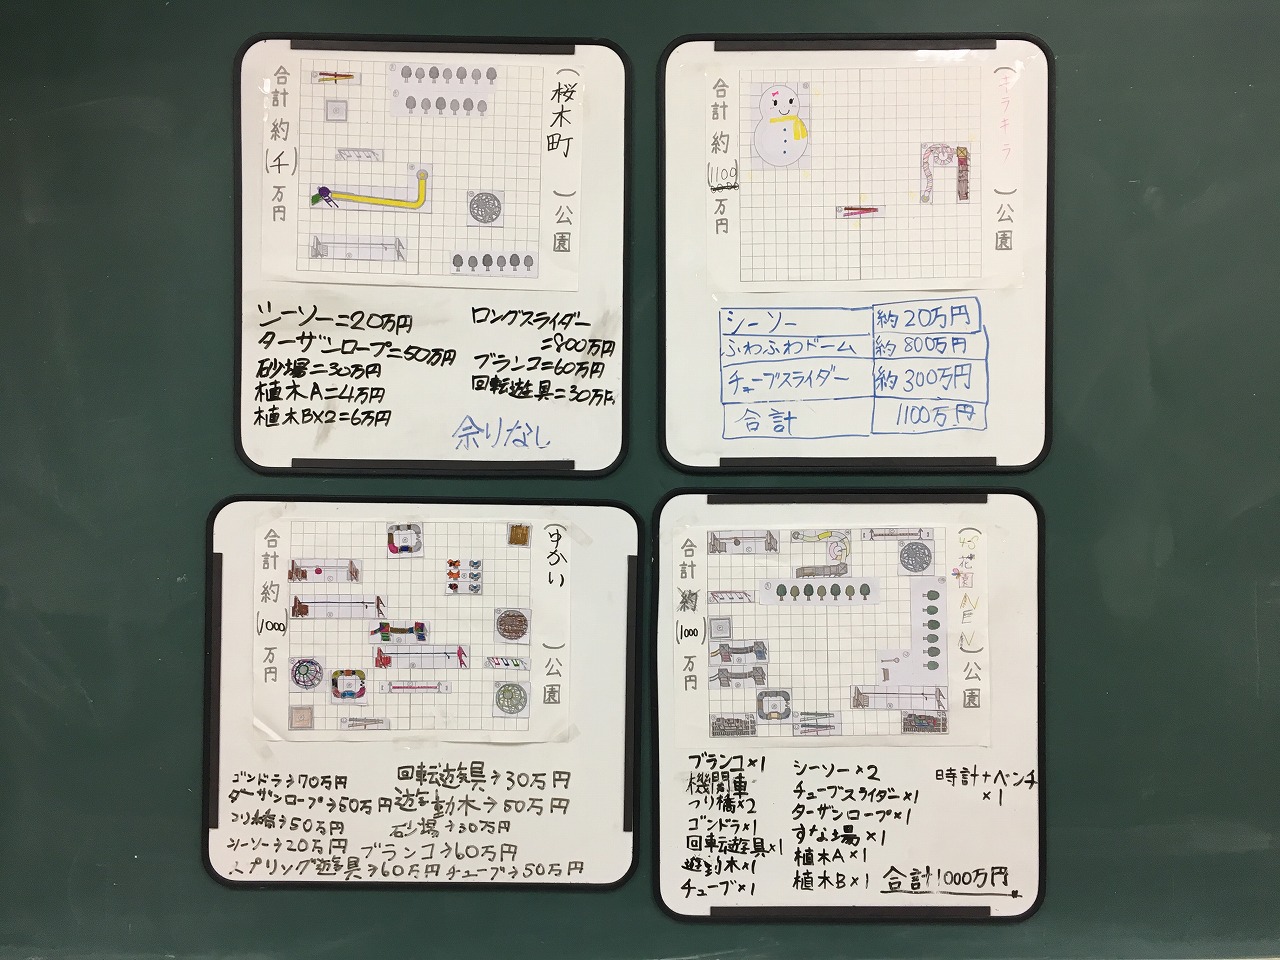 (桜木町)公園
合計約(千)万円
シーソー=20万円
ターザンロープ=50万円
砂場=30万円
植木A=4万円
植木B×2=6万円
ロングスライダー
=800万円
ブランコ=60万円
回転遊具=30万円
余りなし
(キラキラ)公園
合計約(1100)万円
シーソー 約20万円
ふわふわドーム 約800万円
チューブスライダー 約300万円
合計 1100万円
(ゆかい)公園
合計約(1000)万円
ゴンドラ→70万円
ターザンロープ→50万円
つり橋→50万円
シーソー→20万円
スプリング遊具→60万円
回転遊具→30万円
遊動木→50万円
砂場→30万円
ブランコ→60万円
チューブ→50万円
公園
合計約(1000)万円
ブランコ×1
機関車
つり橋×2
ゴンドラ×1
回転遊具×1
遊動木×1
チューブ×1
シーソー×2
チューブスライダー×1
ターザンロープ×1
すな場×1
植木A×1
植木B×1
時計+ベンチ
×1
合計1000万円